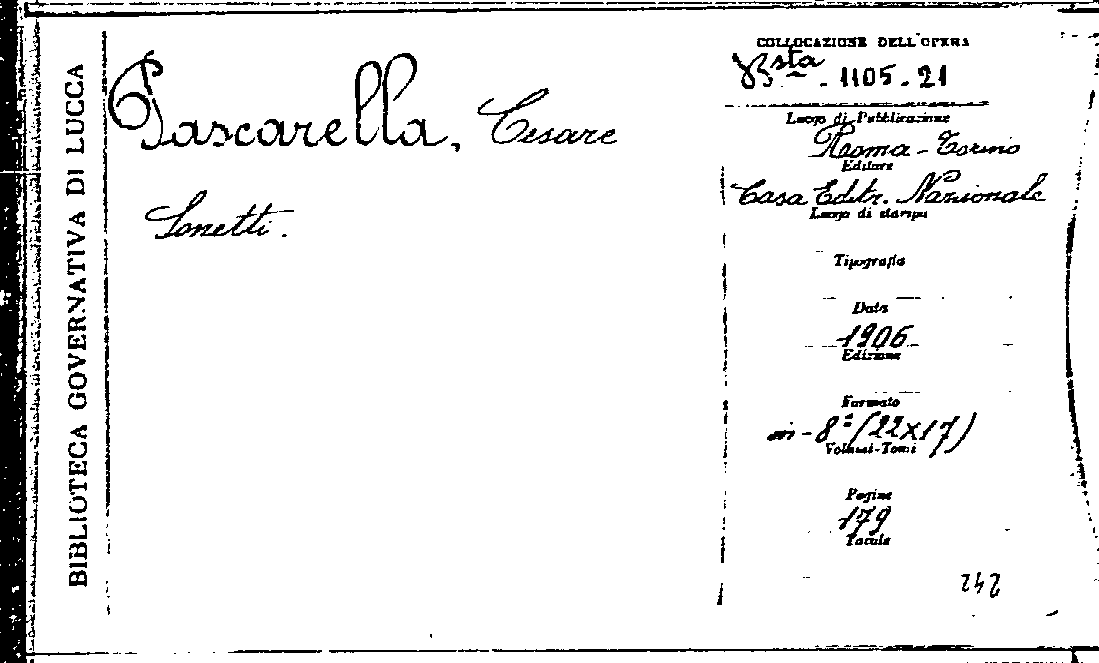 BIBLIOTECA GOVERNATIVA DI LUCCA
Pascarella, Cesare
Sonetti.
COLLOCAZIONE DELL'OPERA
Bsta - 1105.21
Luogo di Pubblicazione
Roma - Torino
Editore
Casa Editr. Nazionale
Luogo di stampa
Tipografia
Data
1906
Edizione
Formato
in-8º (22x17)
Volumi-Tomi
Pagine
179
Tavole
242